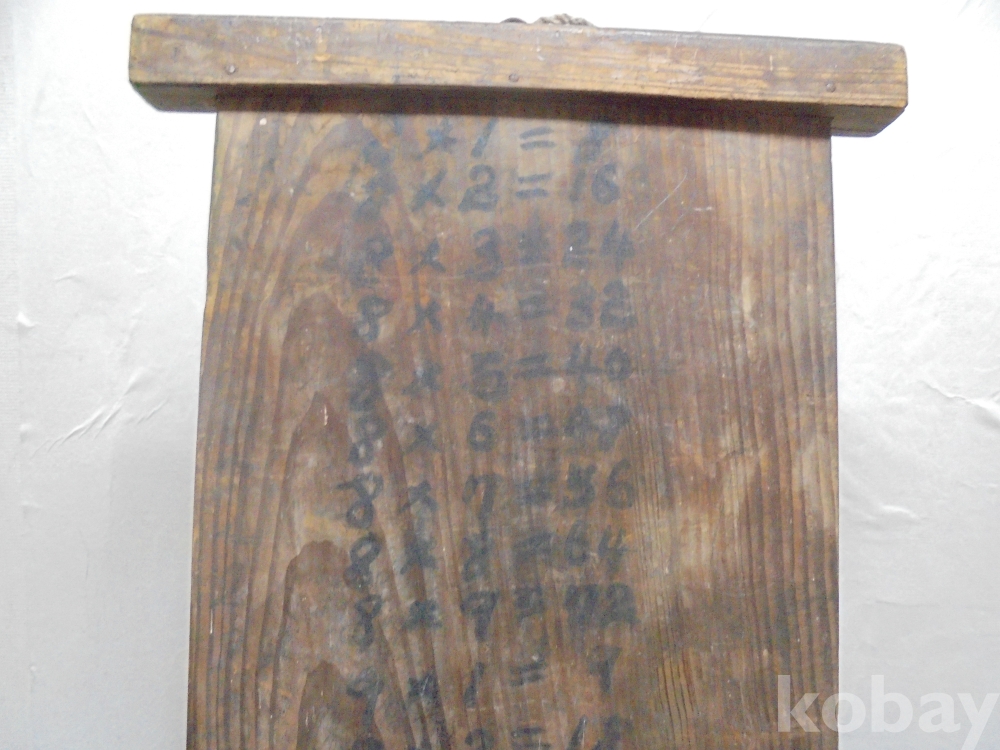 8 × 1 = 8
8 × 2 = 16
8 × 3 = 24
8 × 4 = 32
8 × 5 = 40
8 × 6 = 47
8 × 7 = 56
8 × 8 = 64
8 × 9 = 72
9 × 1 = 9
9 × 2 = 18
kobay